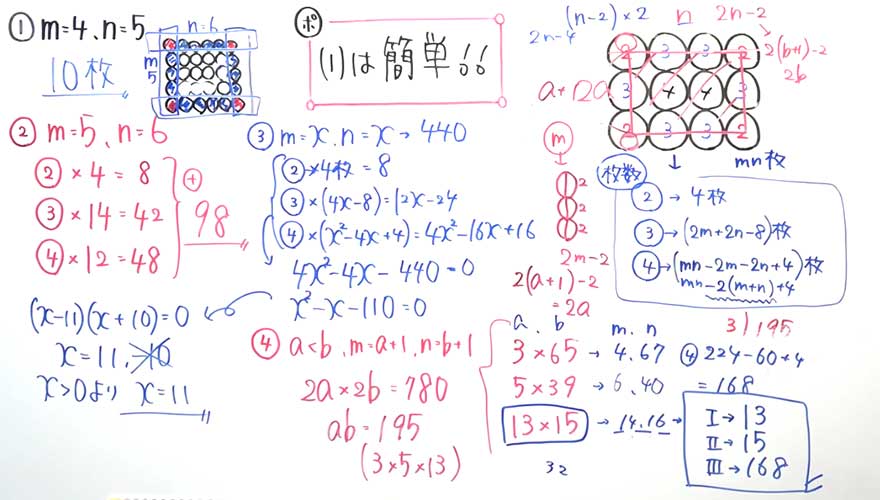 ① m=4、n=5
10枚
n=6
m
5
ポ
(1)は簡単!!
(n-2)×2
2n-4
n
2n-2
2(b+1)-2
2b
2 3 3 2
3 4 4 3
2 3 3 2
mn枚
m
2
2
2
2m-2
2(a+1)-2
=2a
枚数
② → 4枚
③ → (2m+2n-8)枚
④ → (mn-2m-2n+4)枚
mn-2(m+n)+4
② m=5、n=6
② × 4 = 8
③ × 14 = 42
④ × 12 = 48
+
98
③ m=x、n=x → 440
② × 4枚 = 8
③ × (4x-8) = 12x-24
④ × (x²-4x+4) = 4x²-16x+16
4x²-4x-440=0
x²-x-110=0
(x-11)(x+10)=0
x=11、-10
x>0より x=11
④ a<b、m=a+1、n=b+1
2a×2b=780
ab=195
(3×5×13)
a、b
m、n
3)195
3×65 → 4、67
④ 224-60+4
5×39 → 6、40
=168
13×15 → 14、16 →
I→13
II→15
III→168
32